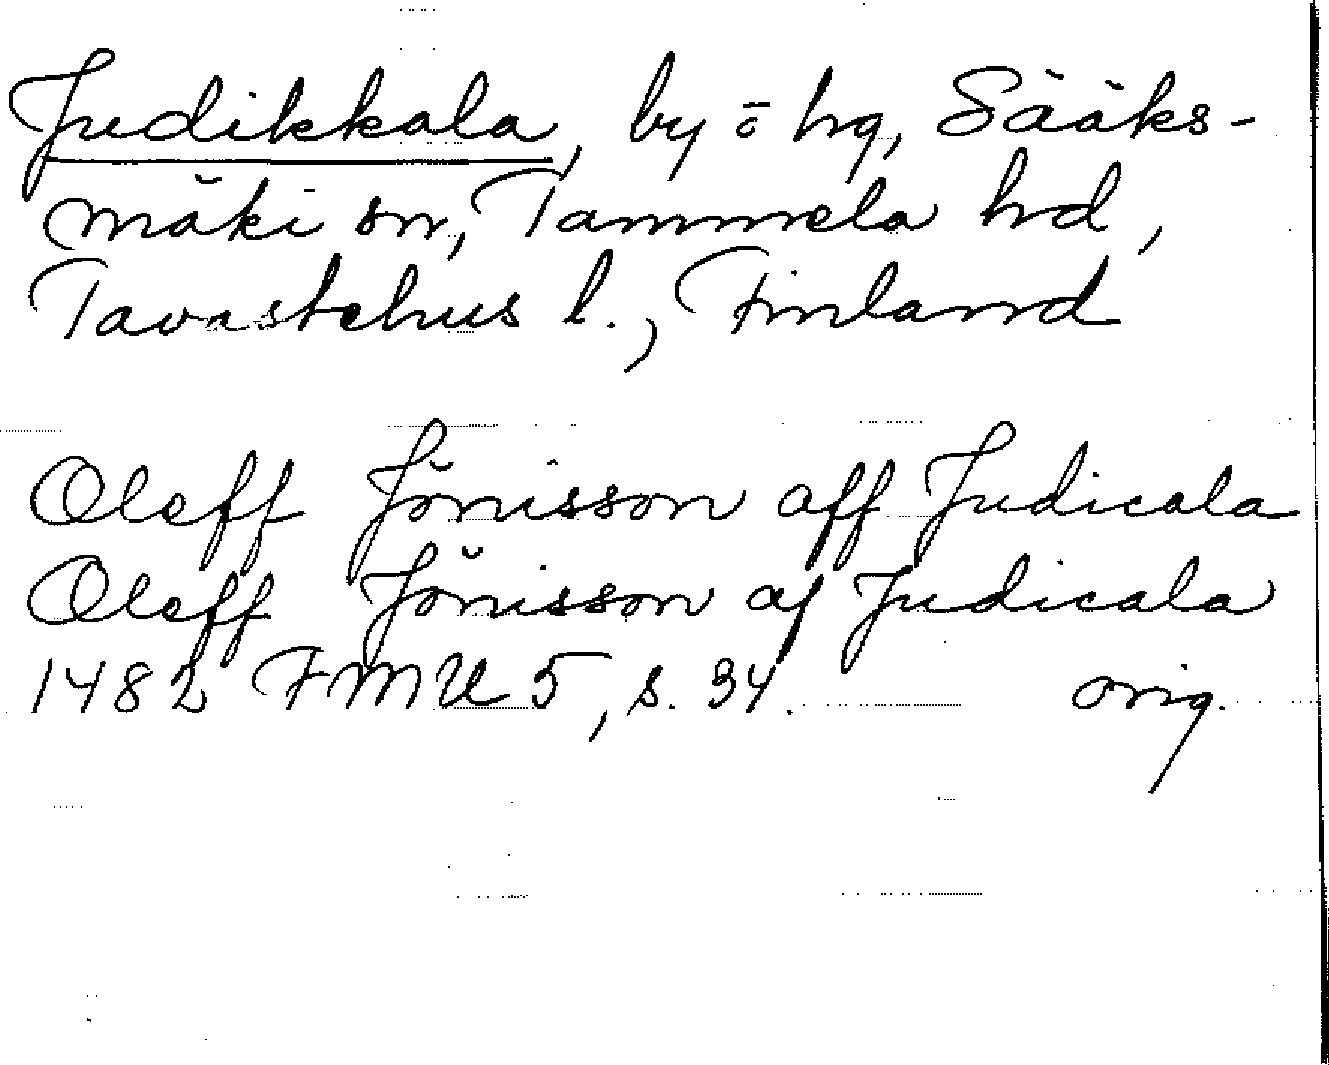 Judikkala, by o hg, Sääks-
mäki sn, Tammela hd,
Tavastehus l., Finland
Oleff Jönisson aff Judicala
Oleff Jönisson af Judicala
1482 FMU 5, s. 34. orig.